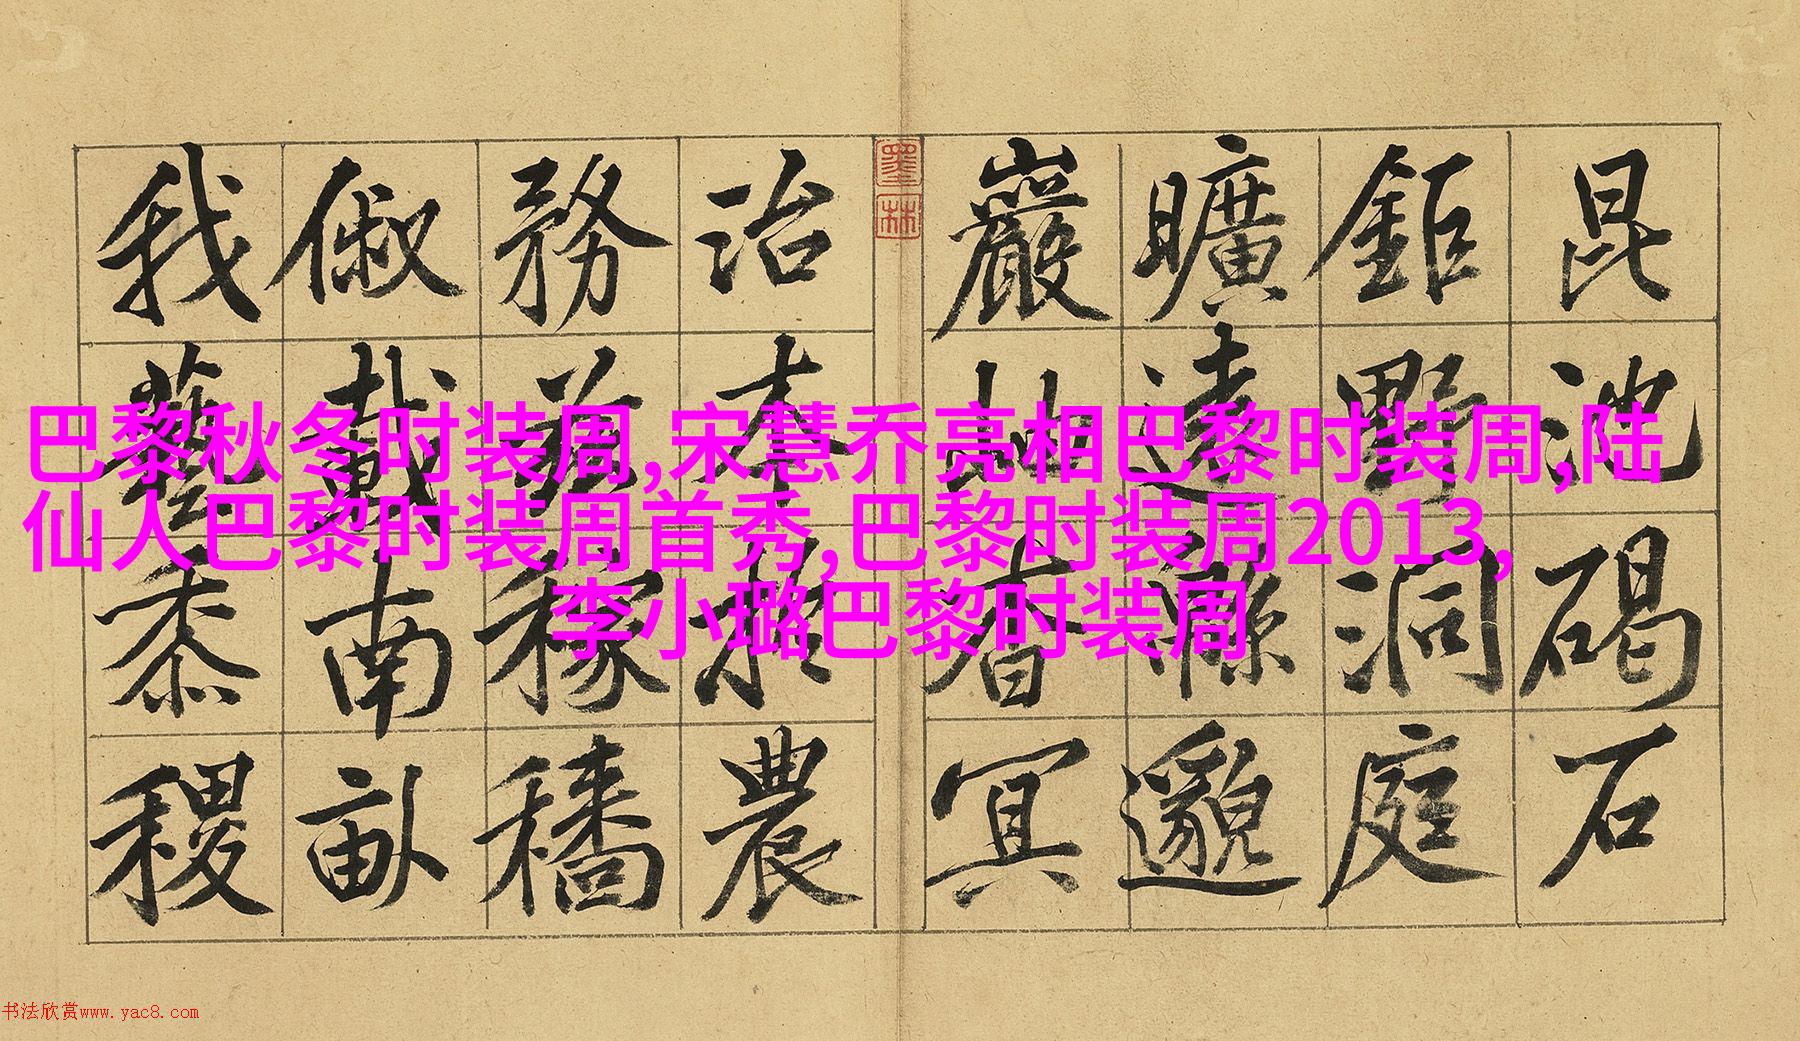 昆池碣石
鉅野洞庭
曠遠緜邈
巖岫杳冥
墨林
治本於農
務茲稼穡
俶載南畝
我藝黍稷
巴黎秋冬时装周,宋慧乔亮相巴黎时装周,陆
仙人巴黎时装周首秀,巴黎时装周2013,
李小璐巴黎时装周
书法欣赏www.yac8.com